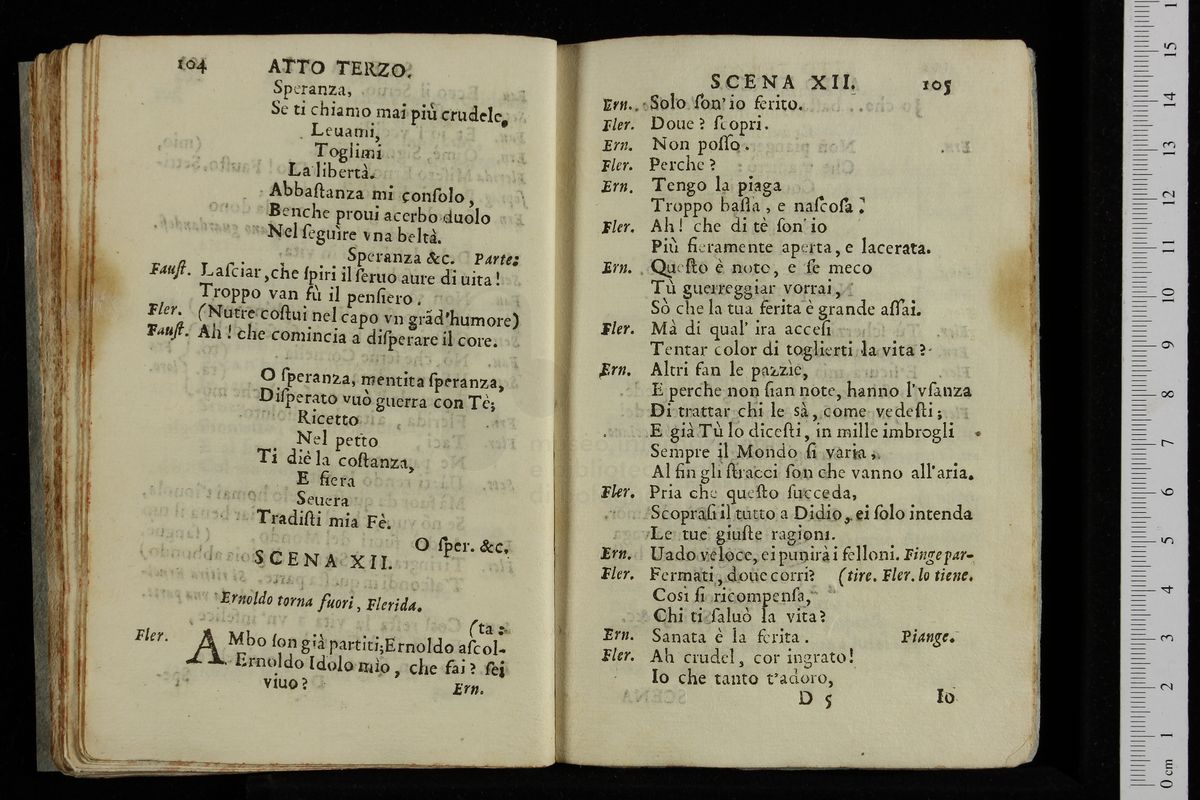 104 ATTO TERZO.
Speranza,
Se ti chiamo mai più crudele,
Leuami,
Toglimi
La libertà.
Abbaſtanza mi conſolo,
Benche proui acerbo duolo
Nel ſeguire vna beltà.
Speranza &c. Parte:
Fauſt. Laſciar, che ſpiri il ſeruo aure di uita!
Troppo van fù il penſiero.
Fler. (Nutre coſtui nel capo vn grãd'humore)
Fauſt. Ah! che comincia a diſperare il core.
O ſperanza, mentita ſperanza,
Diſperato vuò guerra con Tè;
Ricetto
Nel petto
Ti diè la coſtanza,
E fiera
Seuera
Tradiſti mia Fè.
O ſper. &c.
SCENA XII.
Ernoldo torna fuori, Flerida.
(ta:
Fler. AMbo ſon già partiti; Ernoldo aſcol-
Ernoldo Idolo mio, che fai? ſei
viuo?
Ern.
SCENA XII. 105
Ern. Solo ſon' io ferito.
Fler. Doue? ſcopri.
Ern. Non poſſo.
Fler. Perche?
Ern. Tengo la piaga
Troppo baſſa, e naſcoſa.
Fler. Ah! che di tè ſon' io
Più fieramente aperta, e lacerata.
Ern. Queſto è noto, e ſe meco
Tù guerreggiar vorrai,
Sò che la tua ferita è grande aſſai.
Fler. Mà di qual' ira acceſi
Tentar color di toglierti la vita?
Ern. Altri fan le pazzie,
E perche non ſian note, hanno l'vſanza
Di trattar chi le sà, come vedeſti;
E già Tù lo diceſti, in mille imbrogli
Sempre il Mondo ſi varia,
Al fin gli ſtracci ſon che vanno all'aria.
Fler. Pria che queſto ſucceda,
Scopraſi il tutto a Didio, ei ſolo intenda
Le tue giuſte ragioni.
Ern. Uado veloce, ei punirà i felloni. Finge par-
Fler. Fermati, doue corri? (tire. Fler. lo tiene.
Così ſi ricompenſa,
Chi ti ſaluò la vita?
Ern. Sanata è la ferita. Piange.
Fler. Ah crudel, cor ingrato!
Io che tanto t'adoro,
D 5 Io
0 cm 1 2 3 4 5 6 7 8 9 10 11 12 13 14 15